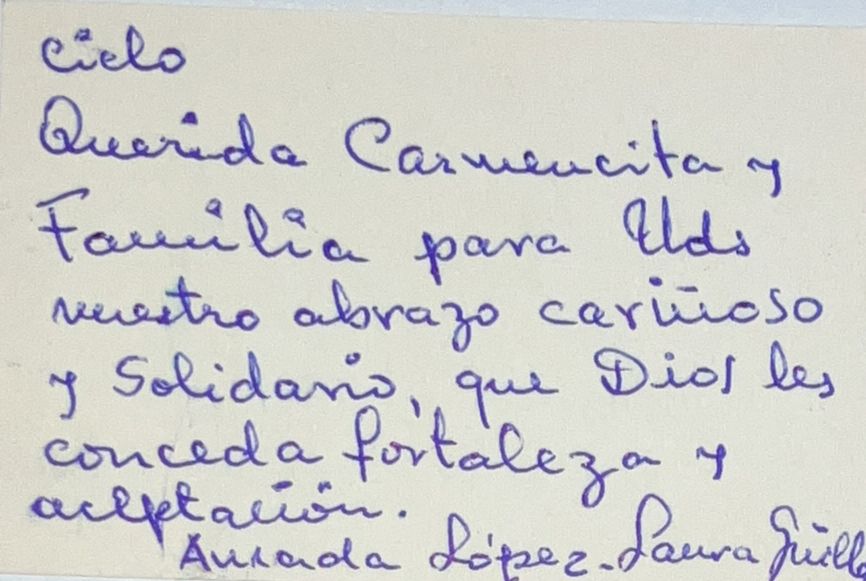 cielo
Querida Carmencita y
Familia para Uds
nuestro abrazo cariñoso
y Solidario, que Dios les
conceda fortaleza y
aceptación.
López. Laura